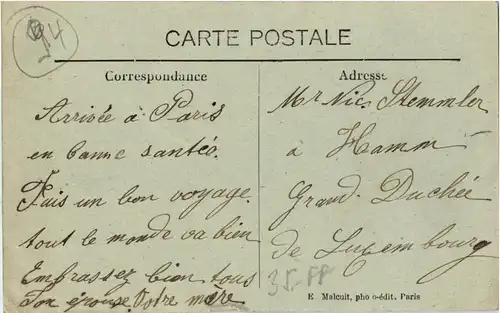 94
CARTE POSTALE
Correspondance
Arrivée à Paris
en banne santée.
Fais un bon voyage.
tout le monde va bien
Embrassez bien tous
Ton épouse. Votre mère
Adresse
Mr Nic. Stemmler
à Hamm
Grand-Duchée
de Luxembourg
35-FF
E. Malcuit, pho o-édit. Paris